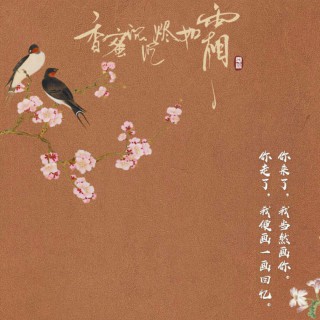 香蜜沉沉烬如霜
你来了，我当然画你。
你走了，我便画一画回忆。